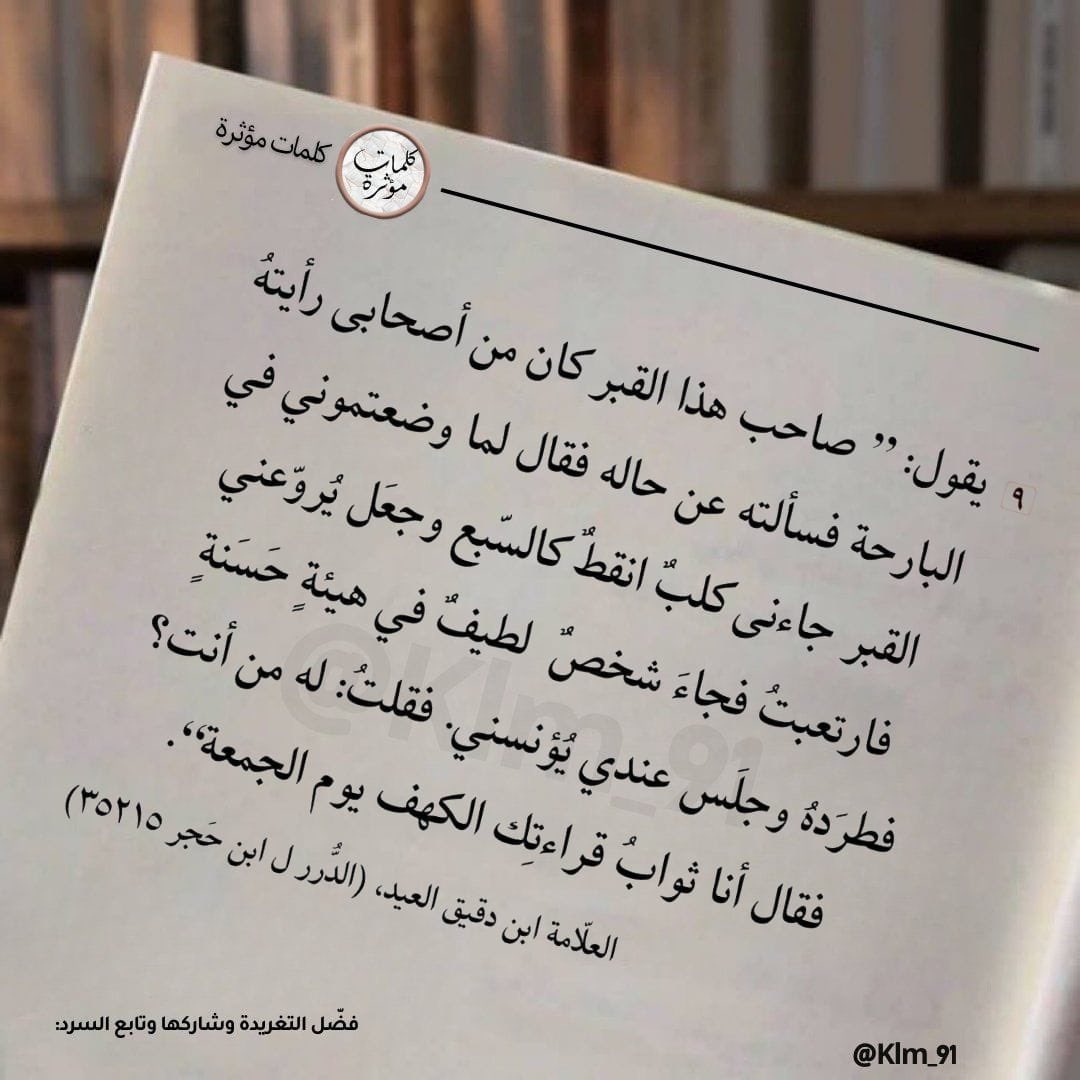 كلمات مؤثرة
كلمات
مؤثرة
٩ يقول: ” صاحب هذا القبر كان من أصحابى رأيتهُ
البارحة فسألته عن حاله فقال لما وضعتموني في
القبر جاءنى كلبٌ انقطٌ كالسّبع وجعَل يُروّعني
فارتعبتُ فجاءَ شخصٌ لطيفٌ في هيئةٍ حَسَنةٍ
فطرَدهُ وجلَس عندي يُؤنسني. فقلتُ: له من أنت؟
فقال أنا ثوابُ قراءتِك الكهف يوم الجمعة“.
العلّامة ابن دقيق العيد، (الدُّرر ل ابن حَجر ٣٥٢١٥)
@Klm_91
فضّل التغريدة وشاركها وتابع السرد:
@Klm_91